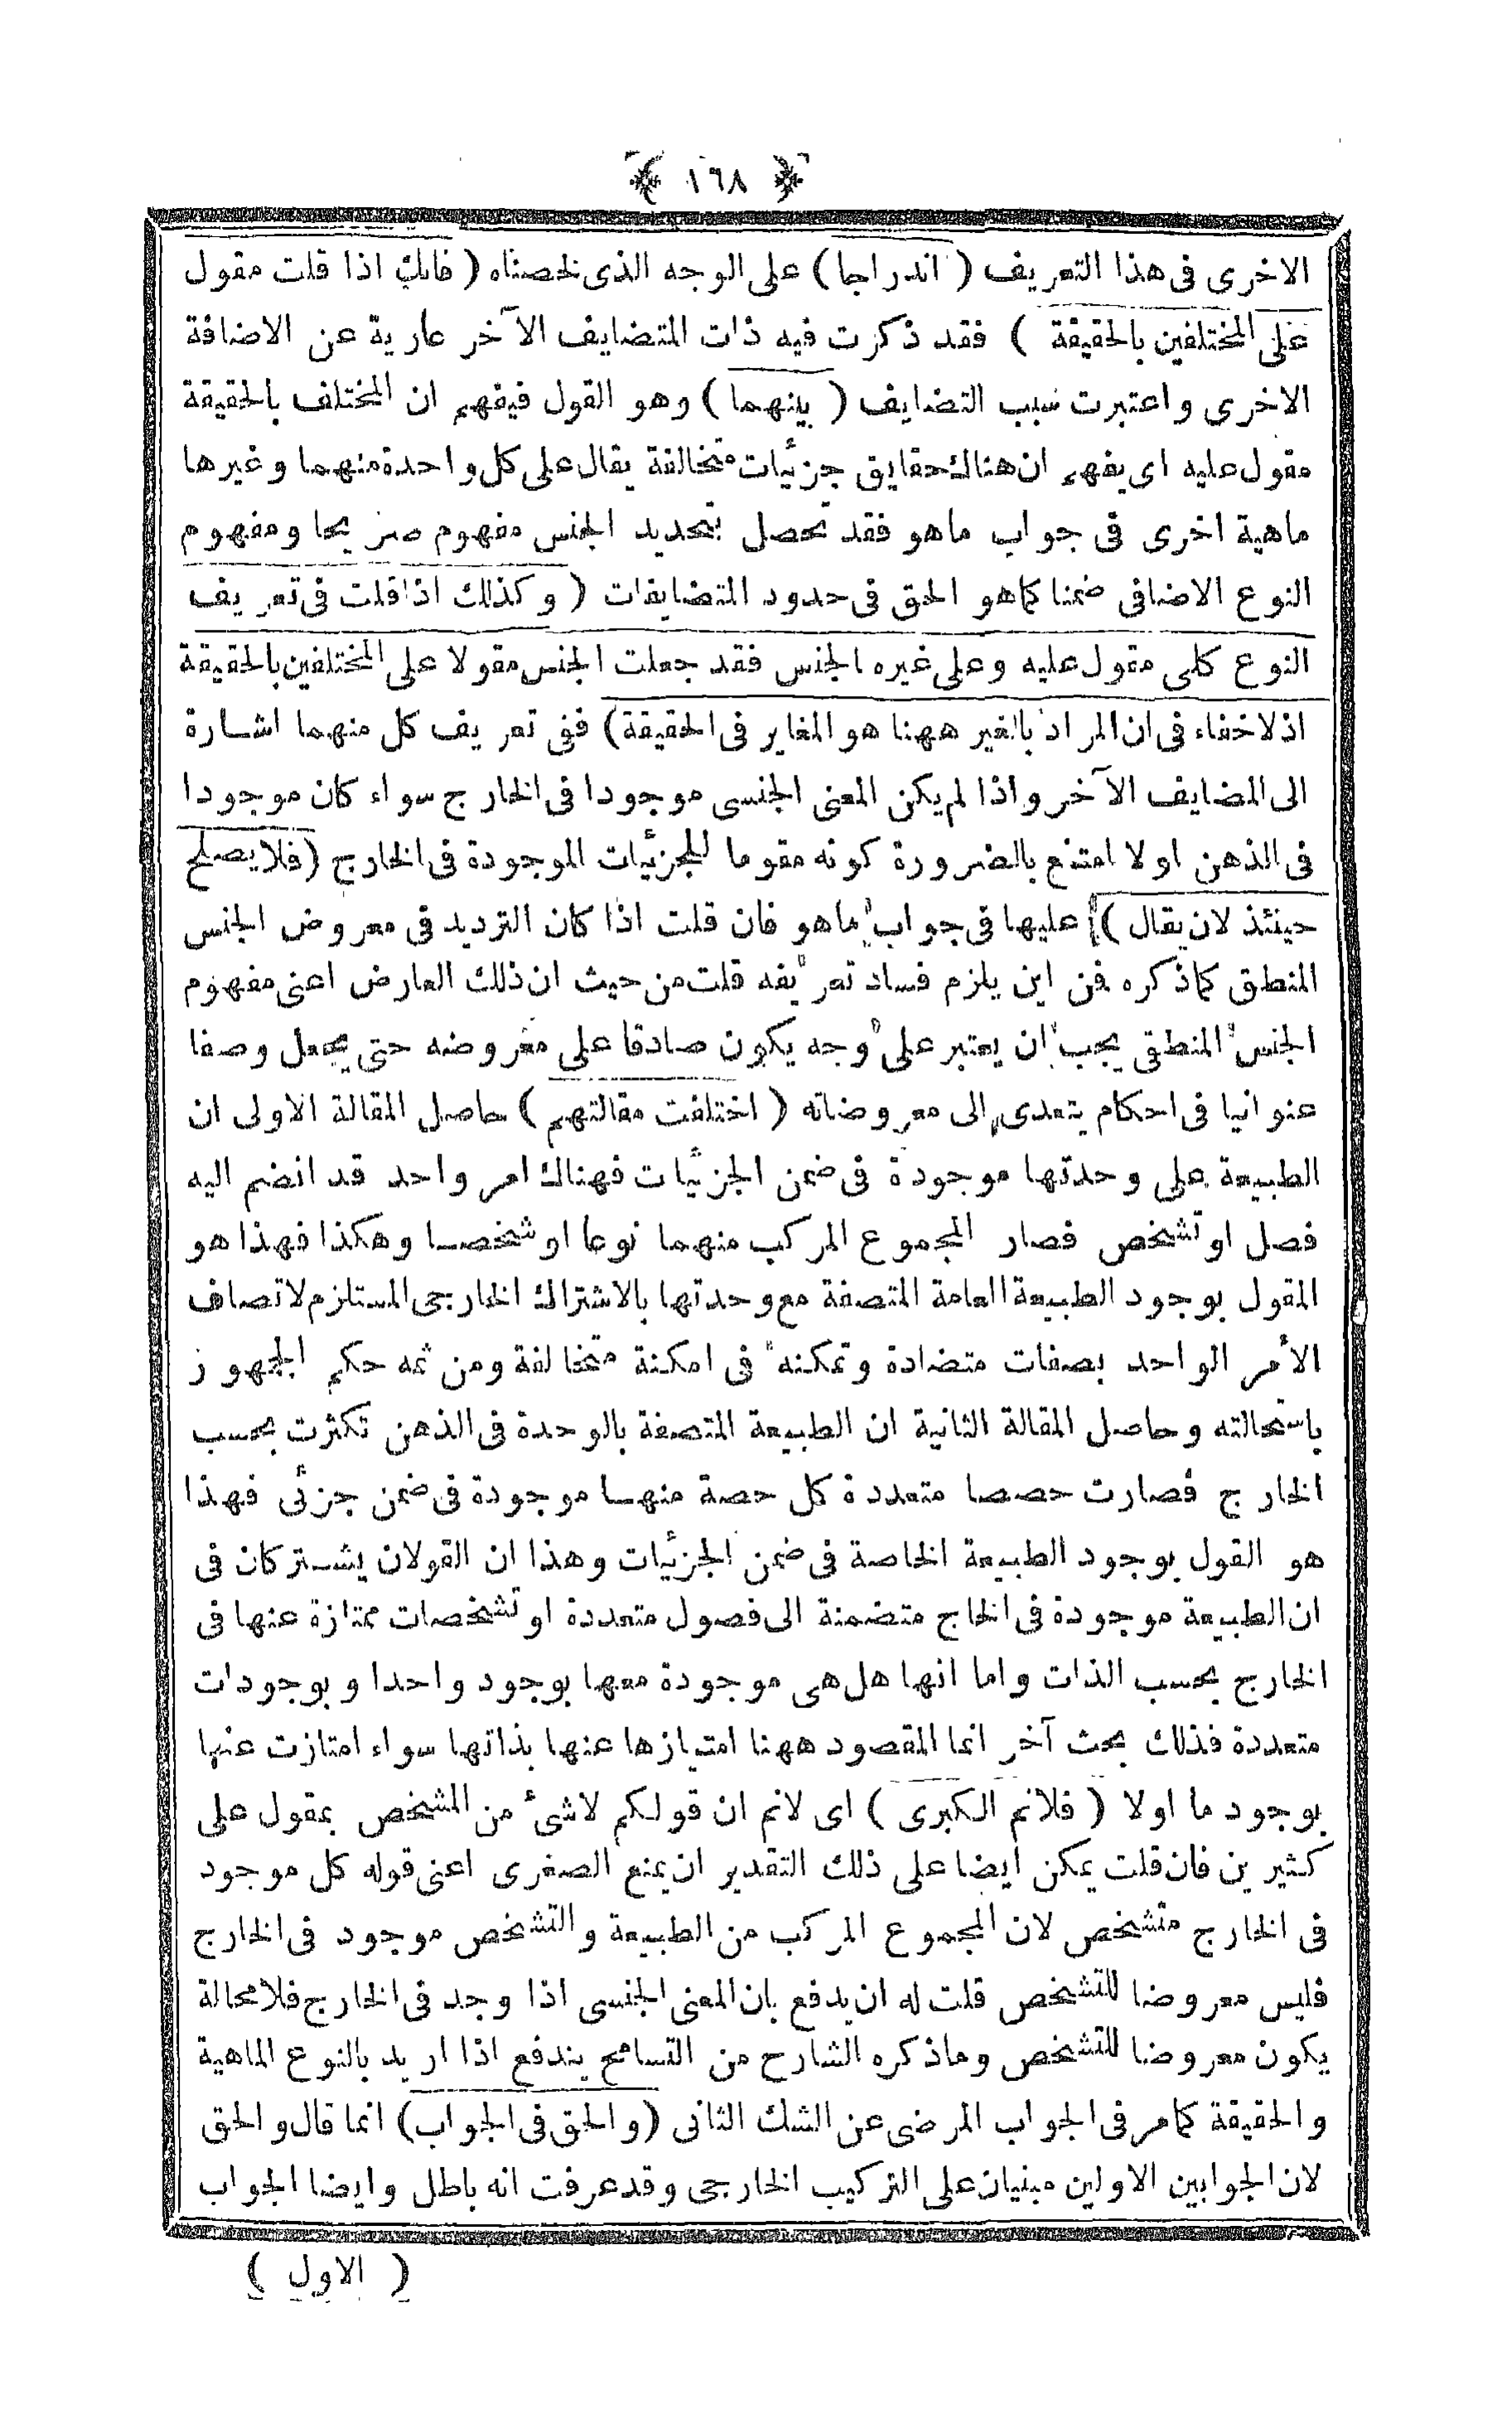 ﴿ ١٦٨ ﴾
الاخرى فى هذا التعريف ( اندراجا ) على الوجه الذى لخصناه ( فانك اذا قلت مقول
على المختلفين بالحقيقة ) فقد ذكرت فيه ذات المتضايف الآخر عارية عن الاضافة
الاخرى واعتبرت سبب التضايف ( بينهما ) وهو القول فيفهم ان المختلف بالحقيقة
مقول عليه اى يفهم ان هناك حقايق جزئيات متخالفة يقال على كل واحدة منهما وغيرها
ماهية اخرى فى جواب ماهو فقد تحصل بتحديد الجنس مفهوم صريحا ومفهوم
النوع الاضافى ضمنا كماهو الحق فى حدود المتضايفات ( وكذلك اذا قلت فى تعريف
النوع كلى مقول عليه وعلى غيره الجنس فقد جعلت الجنس مقولا على المختلفين بالحقيقة
اذ لاخفاء فى ان المراد بالغير ههنا هو المغاير فى الحقيقة ) ففى تعريف كل منهما اشارة
الى المضايف الآخر واذا لم يكن المعنى الجنسى موجودا فى الخارج سواء كان موجودا
فى الذهن اولا امتنع بالضرورة كونه مقوما للجزئيات الموجودة فى الخارج ( فلا يصلح
حينئذ لان يقال ) عليها فى جواب ماهو فان قلت اذا كان الترديد فى معروض الجنس
المنطقى كماذكره فمن اين يلزم فساد تعريفه قلت من حيث ان ذلك العارض اعنى مفهوم
الجنس المنطقى يجب ان يعتبر على وجه يكون صادقا على معروضه حتى يجعل وصفا
عنوانيا فى احكام يتعدى الى معروضاته ( اختلفت مقالتهم ) حاصل المقالة الاولى ان
الطبيعة على وحدتها موجودة فى ضمن الجزئيات فهناك امر واحد قد انضم اليه
فصل او تشخص فصار المجموع المركب منهما نوعا او شخصا وهكذا فهذا هو
المقول بوجود الطبيعة العامة المتصفة مع وحدتها بالاشتراك الخارجى المستلزم لاتصاف
الأمر الواحد بصفات متضادة وتمكنه فى امكنة متخالفة ومن ثمه حكم الجمهور
باستحالته وحاصل المقالة الثانية ان الطبيعة المتصفة بالوحدة فى الذهن تكثرت بحسب
الخارج فصارت حصصا متعددة كل حصة منها موجودة فى ضمن جزئى فهذا
هو القول بوجود الطبيعة الخاصة فى ضمن الجزئيات وهذا ان القولان يشتركان فى
ان الطبيعة موجودة فى الخاج متضمنة الى فصول متعددة او تشخصات ممتازة عنها فى
الخارج بحسب الذات واما انها هل هى موجودة معها بوجود واحدا وبوجودات
متعددة فذلك بحث آخر انما المقصود ههنا امتيازها عنها بذاتها سواء امتازت عنها
بوجود ما اولا ( فلانم الكبرى ) اى لانم ان قولكم لاشئ من المشخص بمقول على
كثيرين فان قلت يمكن ايضا على ذلك التقدير ان يمنع الصغرى اعنى قوله كل موجود
فى الخارج متشخص لان المجموع المركب من الطبيعة والتشخص موجود فى الخارج
فليس معروضا للتشخص قلت له ان يدفع بان المعنى الجنسى اذا وجد فى الخارج فلا محالة
يكون معروضا للتشخص وماذكره الشارح من التسامح يندفع اذا اريد بالنوع الماهية
والحقيقة كمامر فى الجواب المرضى عن الشك الثانى ( والحق فى الجواب ) انما قال والحق
لان الجوابين الاولين مبنيان على التركيب الخارجى وقد عرفت انه باطل وايضا الجواب
( الاول )